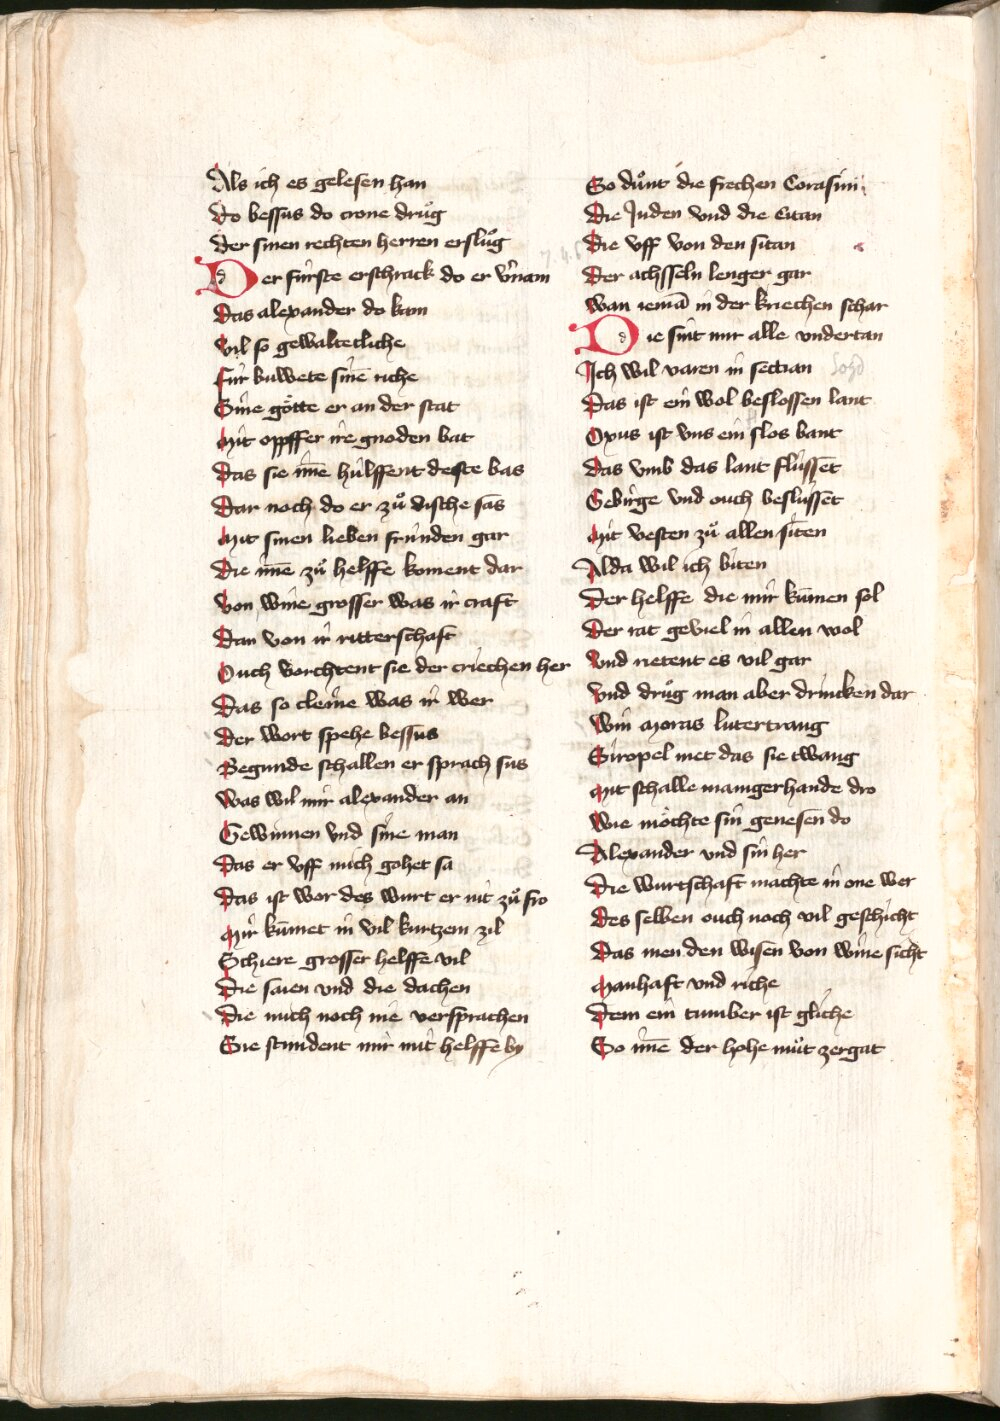 Als ich es gelesen han
Do bessus do crone druͦg
Der sinen rechten herren ersluͦg
Der fúrste erschrack do er v̉nam
Das alexander do kam
Vil so gewaltecliche
Fúr buwete sinē riche
Sine gôtte er an der stat
Mit oppffer ire gnoden bat
Das sie imē húlffent deste bas
Dar noch do er zuͦ dische sas
Mit sinen lieben frúnden gar
Die imē zuͦ helffe koment dar
Von wine grosser was ir craft
Dan von ir ritterschaft
Ouch vorchtent sie der criechen her
Das so cleine was ir wer
Der wort spehe bessus
Begunde schallen er sprach sus
Was wil mir alexander an
Gewinnen vnd sine man
Das er vff mich gohet sa
Das ist wor des wurt er nit zuͦ fro
Mir kūmet in vil kurtzem zil
Schiere grosser helffe vil
Die saien vnd die dachen
Die mich noch nie versprachen
Sie stundent mir mit helffe by
So duͦnt die frechen Corasini
Die Juden vnd die Citan
Die vff von den sitan
Der achsseln lenger gar
Wan iemā in der kriechen schar
Die sint mir alle vndertan
Ich wil varen in sectran
Das ist ein wol beslossen lant
Oxus ist vns ein slos bant
Das vmb das lant flússet
Gebirge vnd ouch beslússet
Mit vesten zuͦ allen siten
Alda wil ich biten
Der helffe die mir kūmen sol
Der rat geviel in allen wol
Vnd rietent es vil gar
Vnd druͦg man aber drincken dar
Win moras lutertrang
Siropel met das sie twang
Mit schalle manigerhande dro
Wie môchte sin genesen do
Alexander vnd sin her
Die wurtschaft machte in one wer
Des selben ouch noch vil geschicht
Das men den wisen von wine sicht
Manhaft vnd riche
Dem ein tumber ist gliche
So imē der hohe muͦt zergat